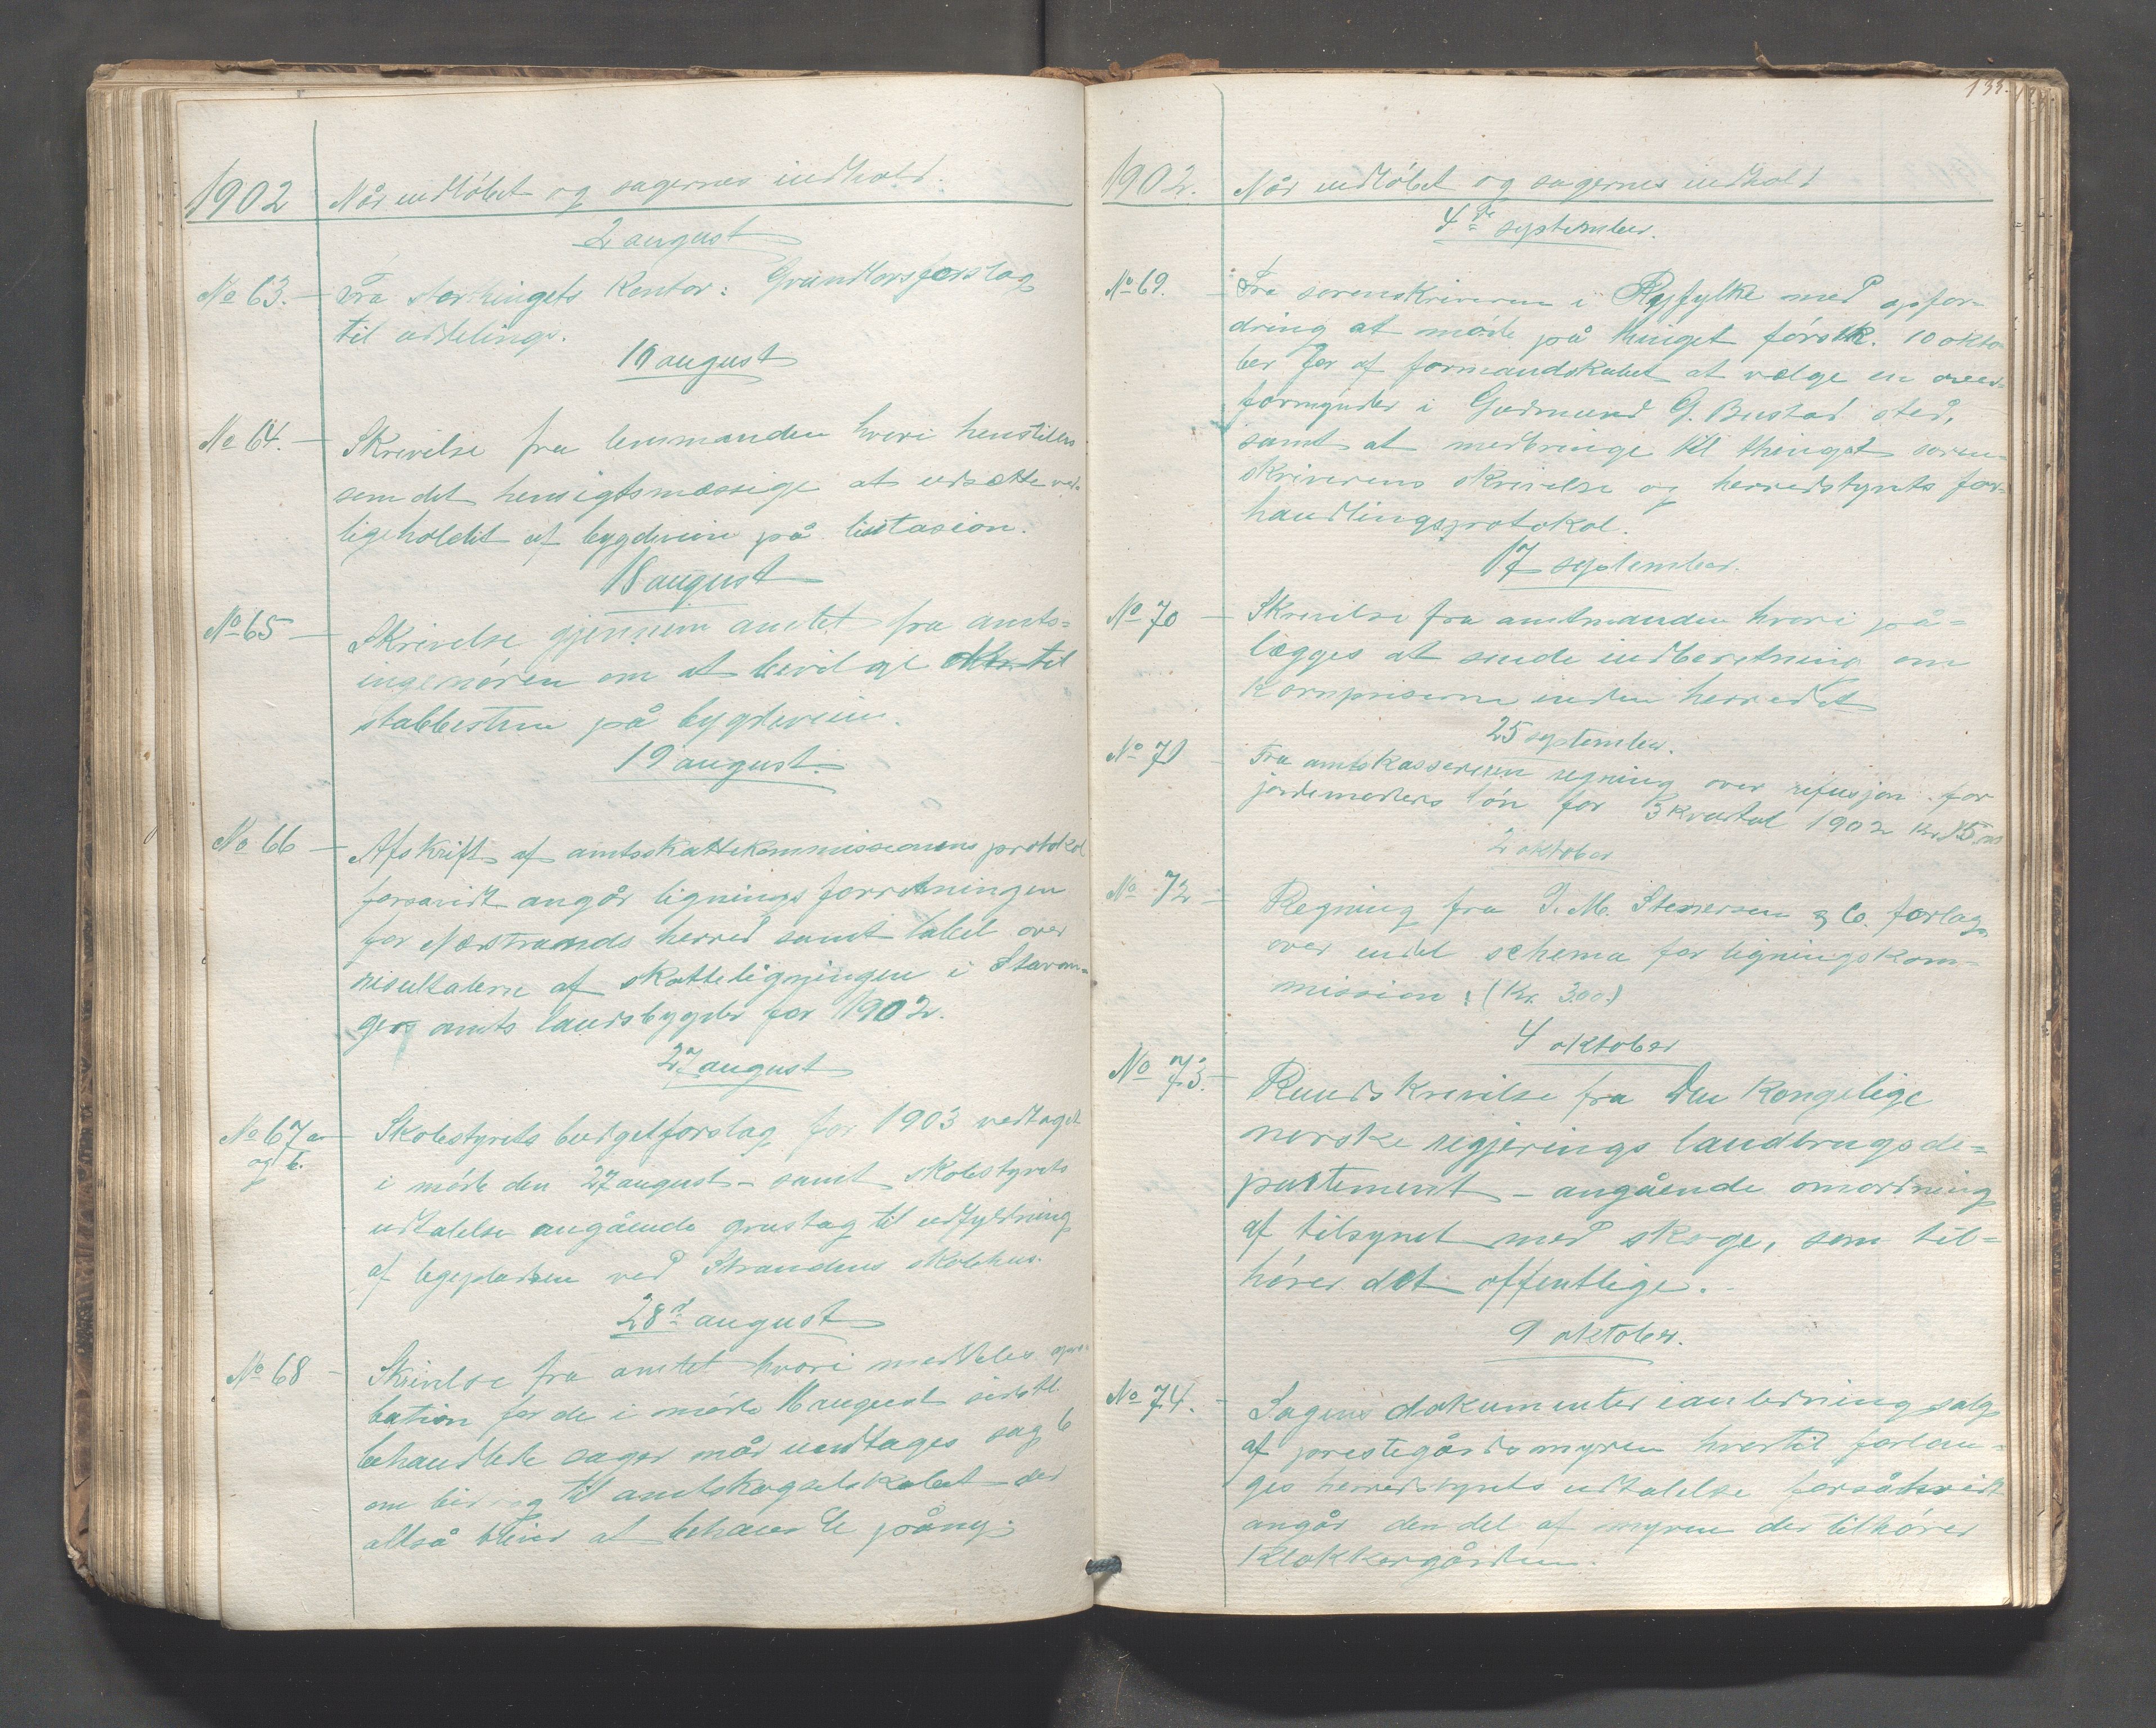 1902 Når indløbet og sagernes indhold.
2 august
No 63. – Fra storthingets kontor: Grundlovsforslag
til uddeling.
16 august
No 64. – Skrivelse fra lensmanden hvori henstilles
som det hensigtsmæssige at udsætte ved-
ligeholdet af bygdeveie på lisitasion.
18 august
No 65 – Skrivelse gjennem amtet fra amts-
ingeniøren om at bevilge til
stabbestene på bygdeveien.
19 august.
No 66 – Afskrift af amtsskattekommissionens protokol
forsavidt angår ligningsforretningen
for Nærstrands herred samt tabel over
resultaterne af skatteligningen i Stavan-
gers amts landsbygder for 1902.
27 august
No 67 a – Skolestyrets budgetforslag for 1903 vedtaget
og b. i møde den 27 august – samt skolestyrets
udtalelse angående grustag til udfyldning
af legepladsen ved Strandens skolehus.
28de august
No 68 – Skrivelse fra amtet hvori meddeles appro-
bation for de i møde 16 august sidstl.
behandlede sager når undtages sag 6
om bidrag til amtskogselskabet der
altså bliver at behandle påny.
133.
1902. Når indløbet og sagernes indhold
4de september.
No 69. – Fra sorenskriveren i Ryfylke med opfor-
dring at møde på thinget førstk. 10 okto-
ber for af formandskabet at vælge en over-
formynder i Gudmund G. Bustad sted,
samt at medbringe til thinget soren-
skriverens skrivelse og herredstyrets for-
handlingsprotokol.
17 september.
No 70 – Skrivelse fra amtmanden hvori på-
lægges at sende indberetning om
kornpriserne inden herredet
25 september.
No 71 – Fra amtskassereren regning over refusjon for
jordemoders løn for 3 kvartal 1902 Kr. 15.00
2 oktober
No 72 – Regning fra I. M. Stenersen & Co. forlag
over endel schema for ligningskom-
mission: (Kr. 3.00.)
4 oktober
No 73. – Rundskrivelse fra Den Kongelige
norske regjerings landbrugsde-
partement – angående omordning
af tilsynet med skoge, som til-
hører det offentlige.
9 oktober.
No 74. – Sagens dokumenter i anledning salg
af prestegårdsmyren hvortil forlan-
ges herredstyrets udtalelse forsåvidt
angår den del af myren der tilhører
Klokkergården.